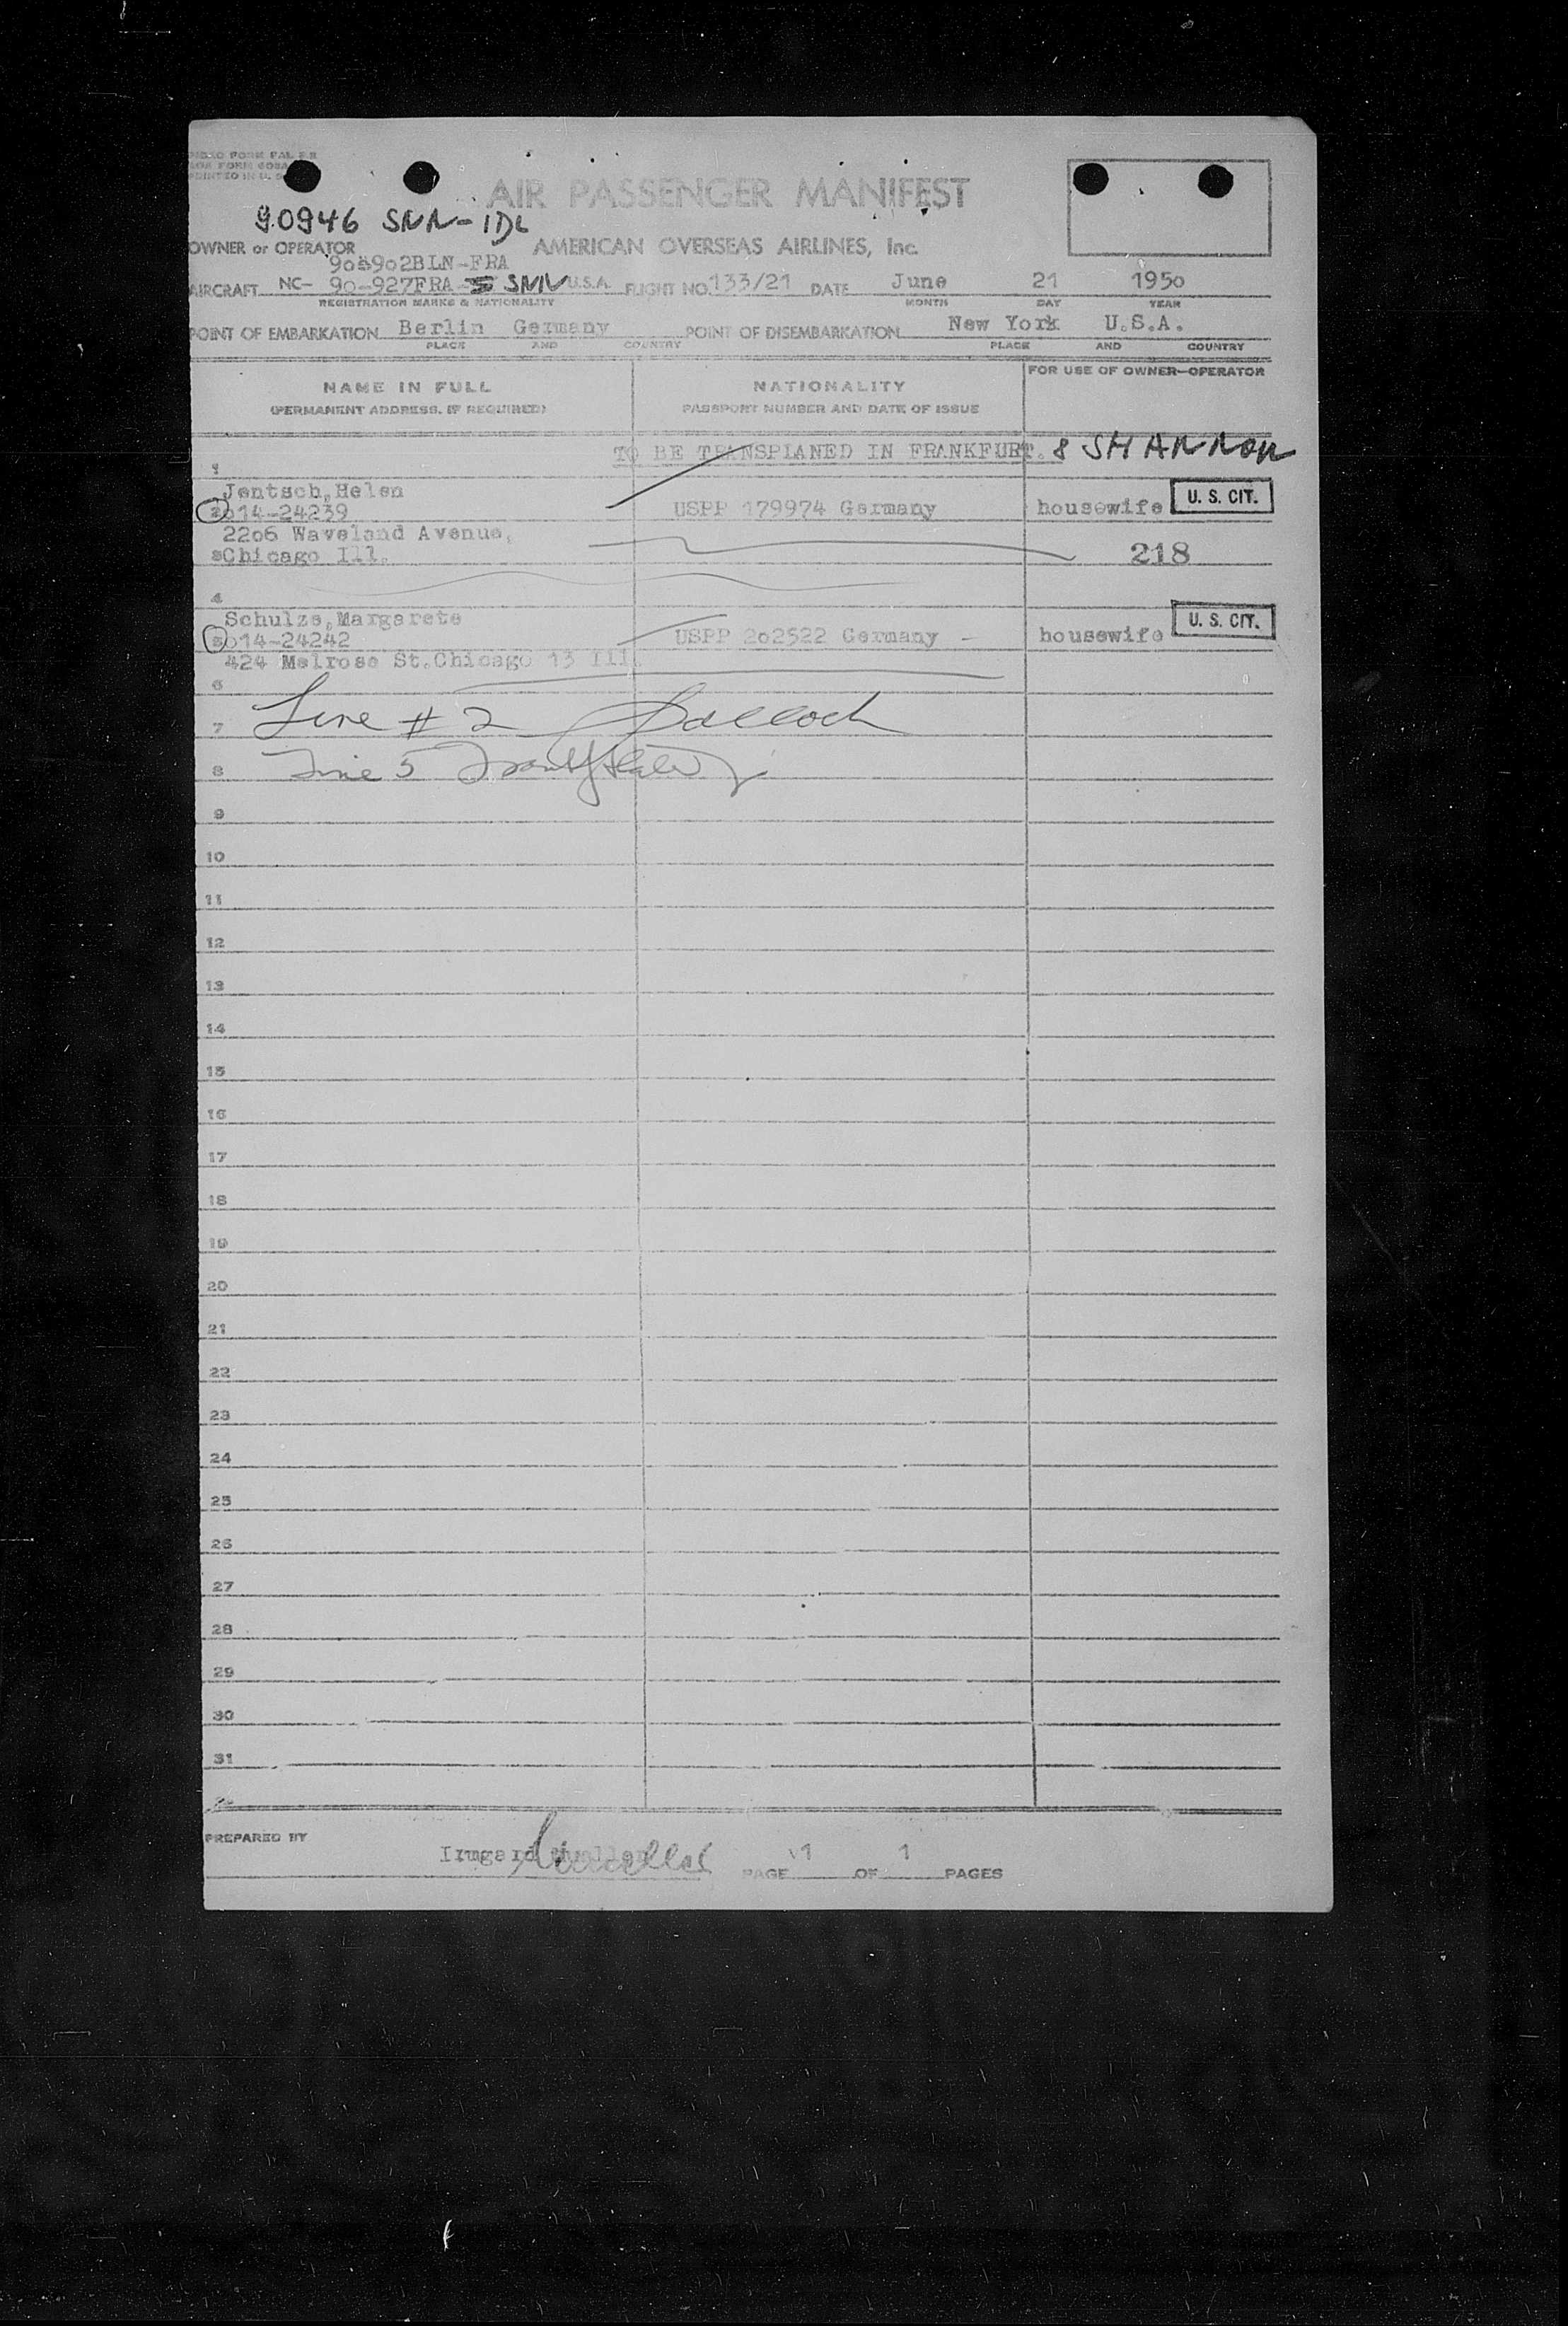 AIR PASSENGER MANIFEST
90946 SNN-IDL
OWNER or OPERATOR AMERICAN OVERSEAS AIRLINES, Inc.
902BLN-FRA
AIRCRAFT NC- 90-927FRA SNN U.S.A. FLIGHT NO. 133/21 DATE June 21 1950
REGISTRATION MARKS & NATIONALITY MONTH DAY YEAR
POINT OF EMBARKATION Berlin Germany POINT OF DISEMBARKATION New York U.S.A.
PLACE AND COUNTRY PLACE AND COUNTRY
NAME IN FULL NATIONALITY FOR USE OF OWNER-OPERATOR
(PERMANENT ADDRESS, IF REQUIRED) PASSPORT NUMBER AND DATE OF ISSUE
TO BE TRANSPLANED IN FRANKFURT. & SHANNON
1
Jentsch,Helen
2 o14-24239 USPP 179974 Germany housewife U. S. CIT.
22o6 Waveland Avenue,
3 Chicago Ill. 218
4
Schulze,Margarete
5 o14-24242 USPP 2o2522 Germany - housewife U. S. CIT.
424 Melrose St.Chicago 13 Ill.
6
7 Line # 2
8 Line 5
9
10
11
12
13
14
15
16
17
18
19
20
21
22
23
24
25
26
27
28
29
30
31
PREPARED BY Irmgard PAGE 1 OF 1 PAGES